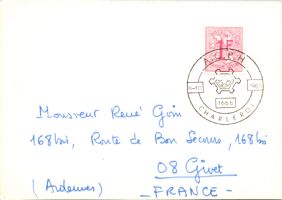 1F
1666
CHARLEROI
Monsieur René Goin
168bis, Route de Bon Secours, 168bis
08 Givet
(Ardennes) - FRANCE -